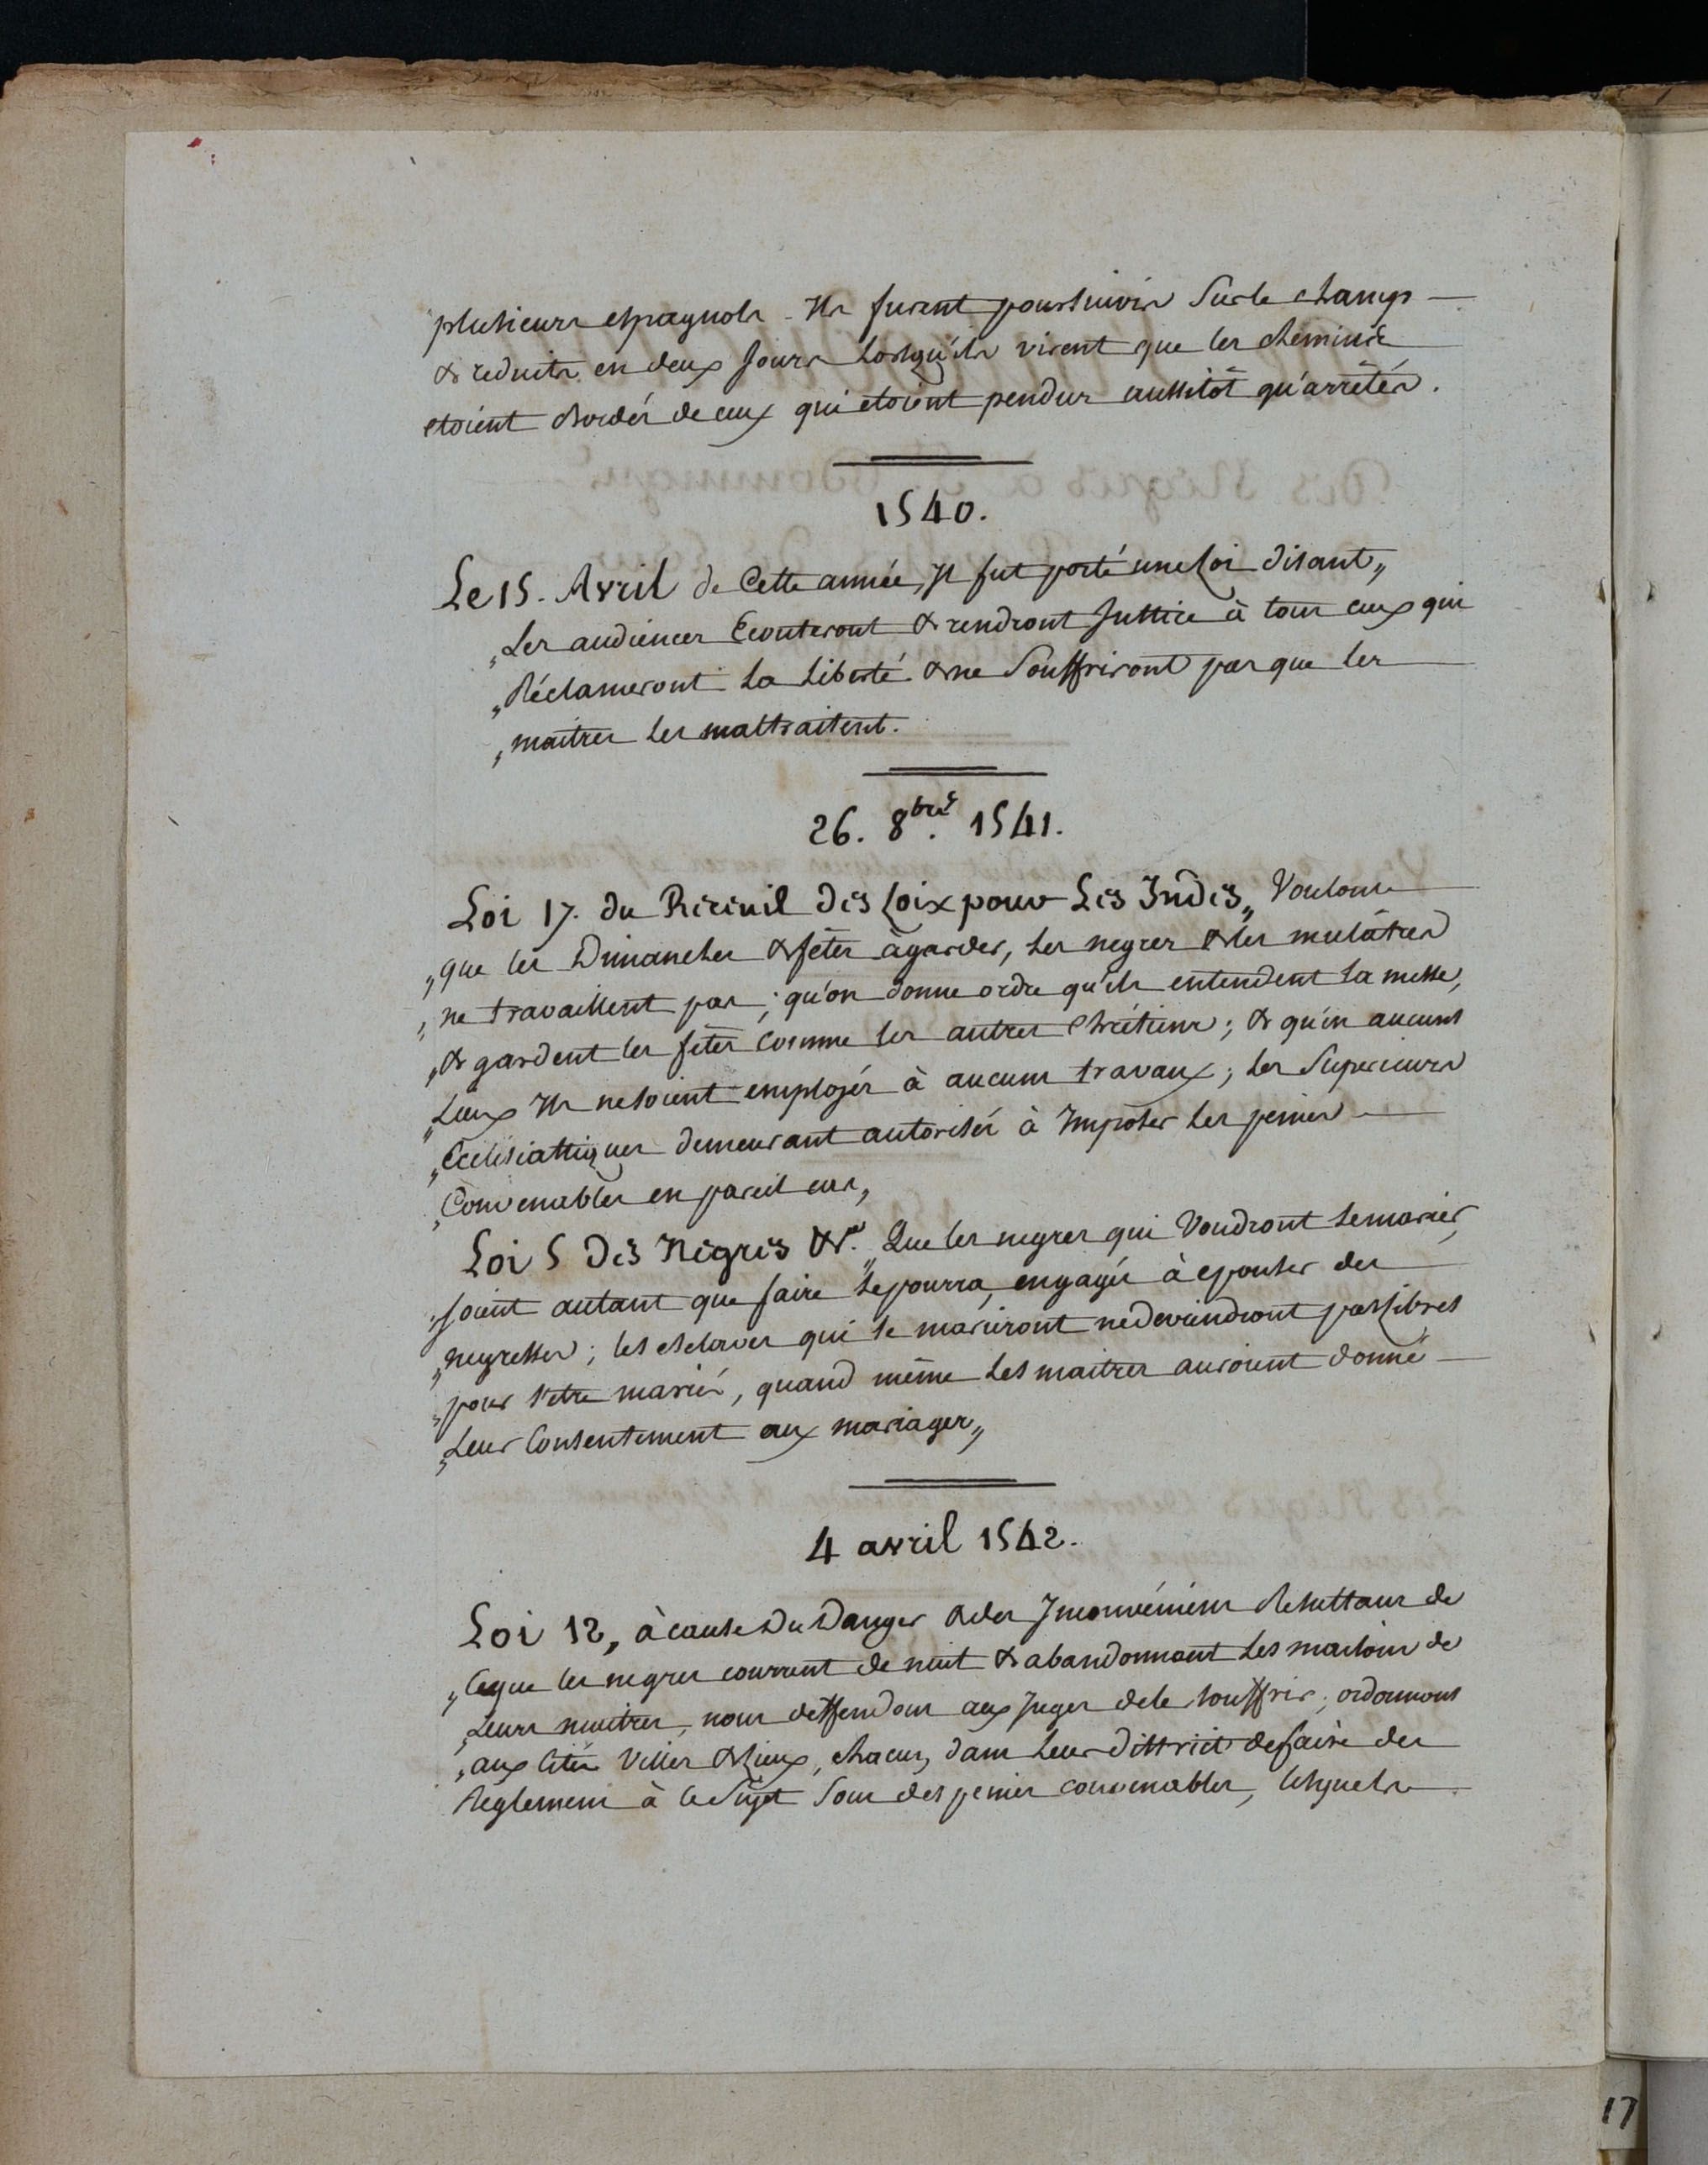 plusieurs espagnols. Ils furent poursuivis Surle champ
& reduits en deux jours Lorsqu'ils virent que les chemins
etoient Bordés de ceux qui etoient pendus aussitôt qu'arrêtés.
1540.
Le 15. Avril de Cette année, Il fut porté une Loi disant „
„ Les audiences Ecouteront & rendront Justice à tous ceux qui
„ Réclameront La Liberté & ne Souffriront pas que les
„ maitres les maltraitent.
26. 8bre. 1541.
Loi 17. du Recueil des Loix pour Les Indes „ Voulons
„ que les Dimanches & fêtes à garder, les negres & les mulâtres
„ ne travaillent pas; qu'on donne ordre qu'ils entendent la messe,
„ & gardent les fêtes comme les autres Chrétiens; & qu'en aucuns
„ Lieux Ils ne soient employés à aucuns travaux; les Superieurs
„ Ecclésiastiques demeurant autorisés à Imposer les peines
„ Convenables en pareil cas „
Loi 5 Des Negres &a. „ Que les negres qui Voudront se marier,
„ soient autant que faire se pourra, engagés à epouser des
„ negresses; les esclaves qui se marieront ne deviendront pas libres
„ pour s'etre mariés, quand même Les maitres auroient donné
„ Leur Consentement aux mariages „
4 avril 1542.
Loi 12, à cause Du Danger & des Inconvéniens Resultans de
„ ce que les negres courrent de nuit & abandonnent Les maisons de
„ Leurs maitres, nous deffendons aux Juges de le souffrir; ordonnons
„ aux Cités Villes & Lieux, chacun, dans Leur district de faire des
Reglemens à ce Sujet Sous des peines convenables, lesquels
17